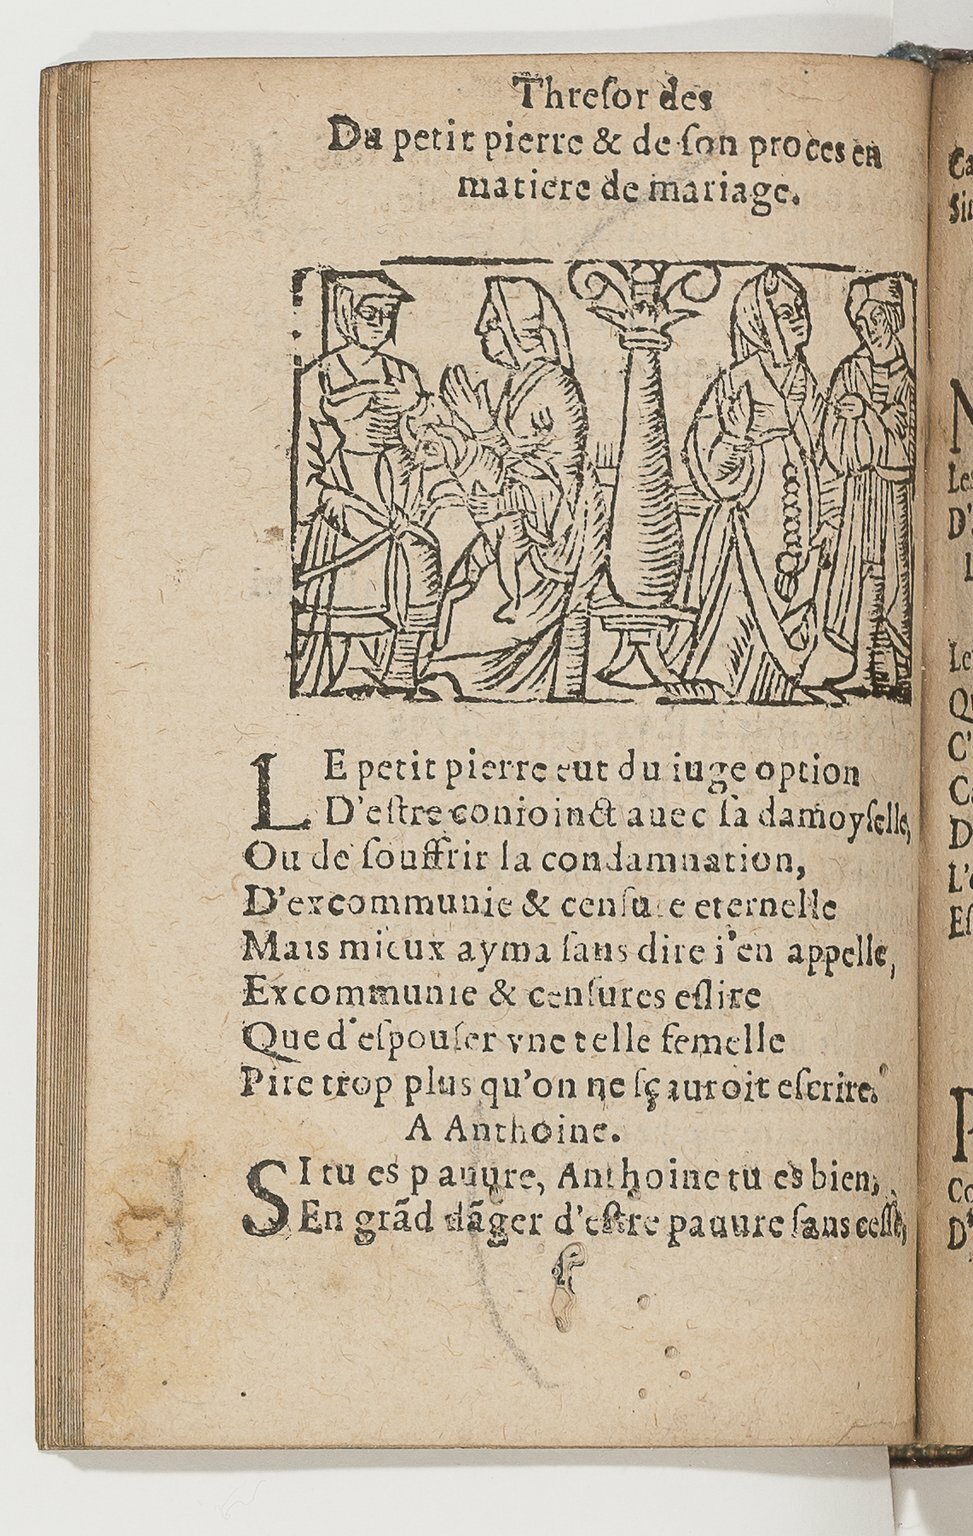 Threſor des
Du petit pierre & de ſon proces en
matiere de mariage.
LE petit pierre eut du iuge option
D'eſtre conioinct auec ſa damoyſelle,
Ou de ſouffrir la condamnation,
D'excommunie & cenſure eternelle
Mais mieux ayma ſans dire i'en appelle,
Excommunie & cenſures eſlire
Que d'eſpouſer vne telle femelle
Pire trop plus qu'on ne ſçauroit eſcrire.
A Anthoine.
SI tu es pauure, Anthoine tu es bien,
En grãd dãger d'eſtre pauure ſans ceſſe,